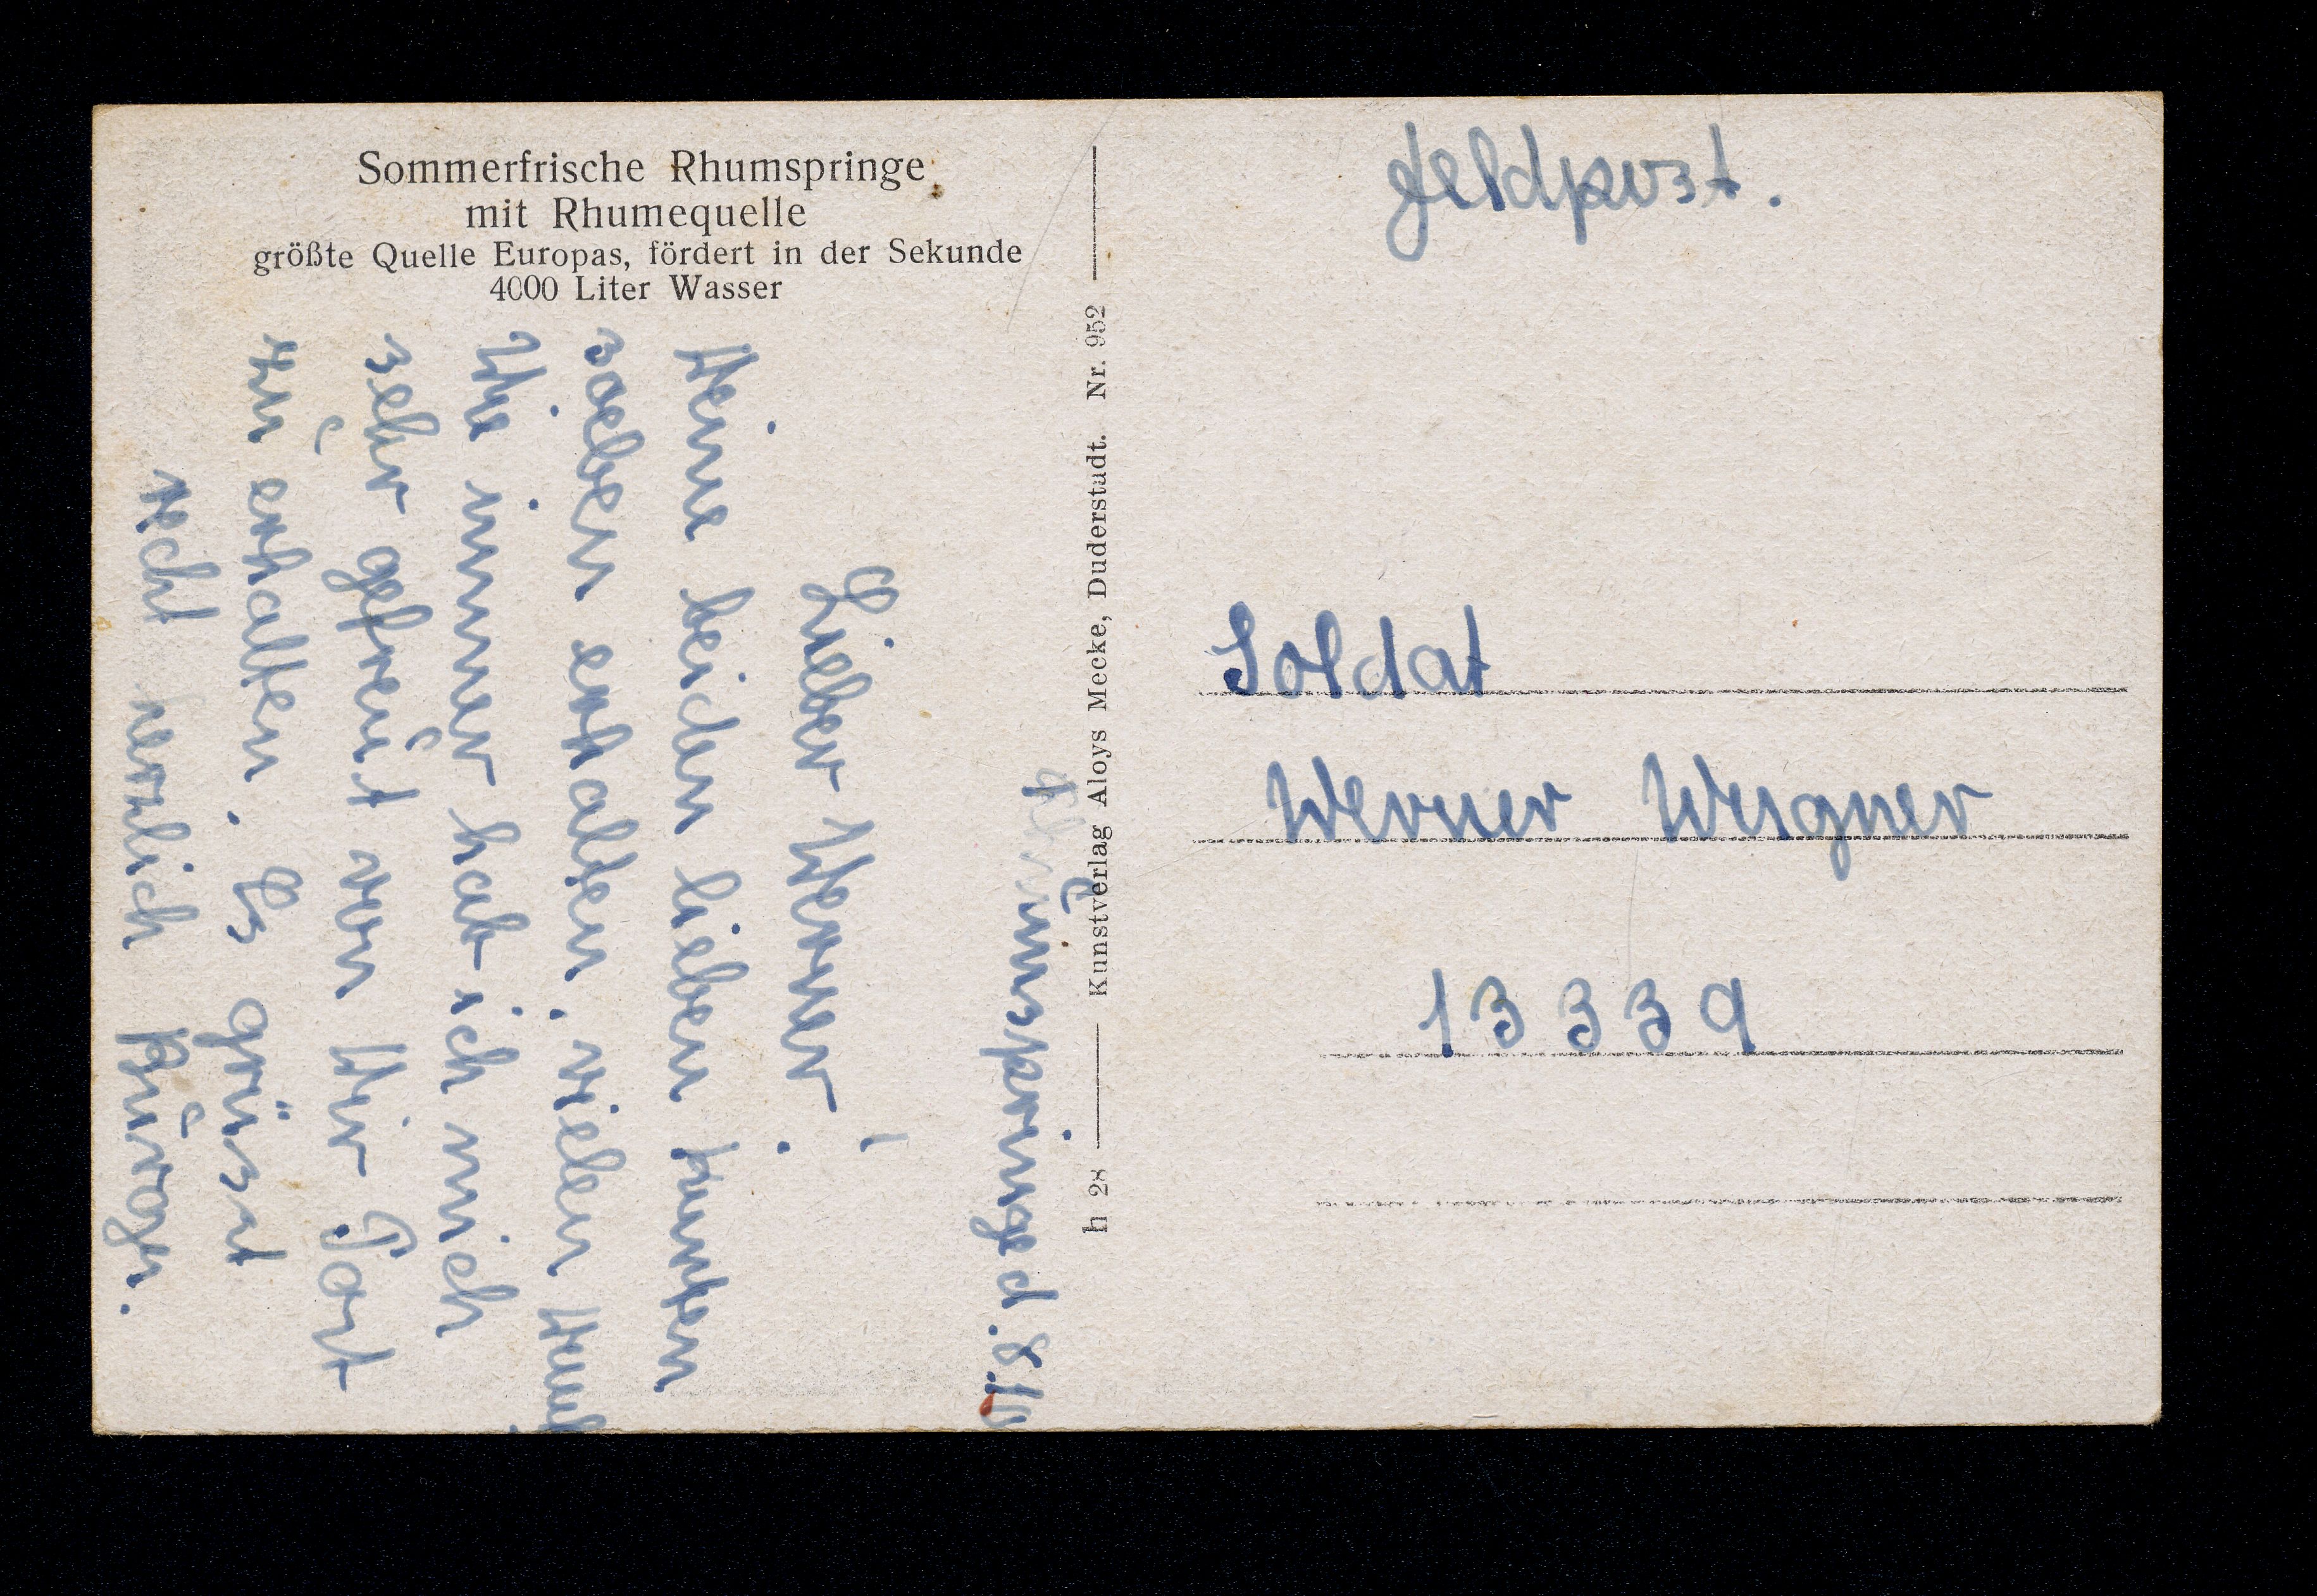 Sommerfrische Rhumspringe
mit Rhumequelle
größte Quelle Europas, fördert in der Sekunde
4000 Liter Wasser
Rhumspringe d. 8.
Lieber Werner!
Deine beiden lieben Karten
soeben erhalten, vielen Dank
Wie immer hab ich mich
sehr gefreut von Dir Post
zu erhalten. Es grüsst
recht herzlich
h 28 Kunstverlag Aloys Mecke, Duderstadt. Nr. 952
Feldpost.
Soldat
Werner Wegner
13339